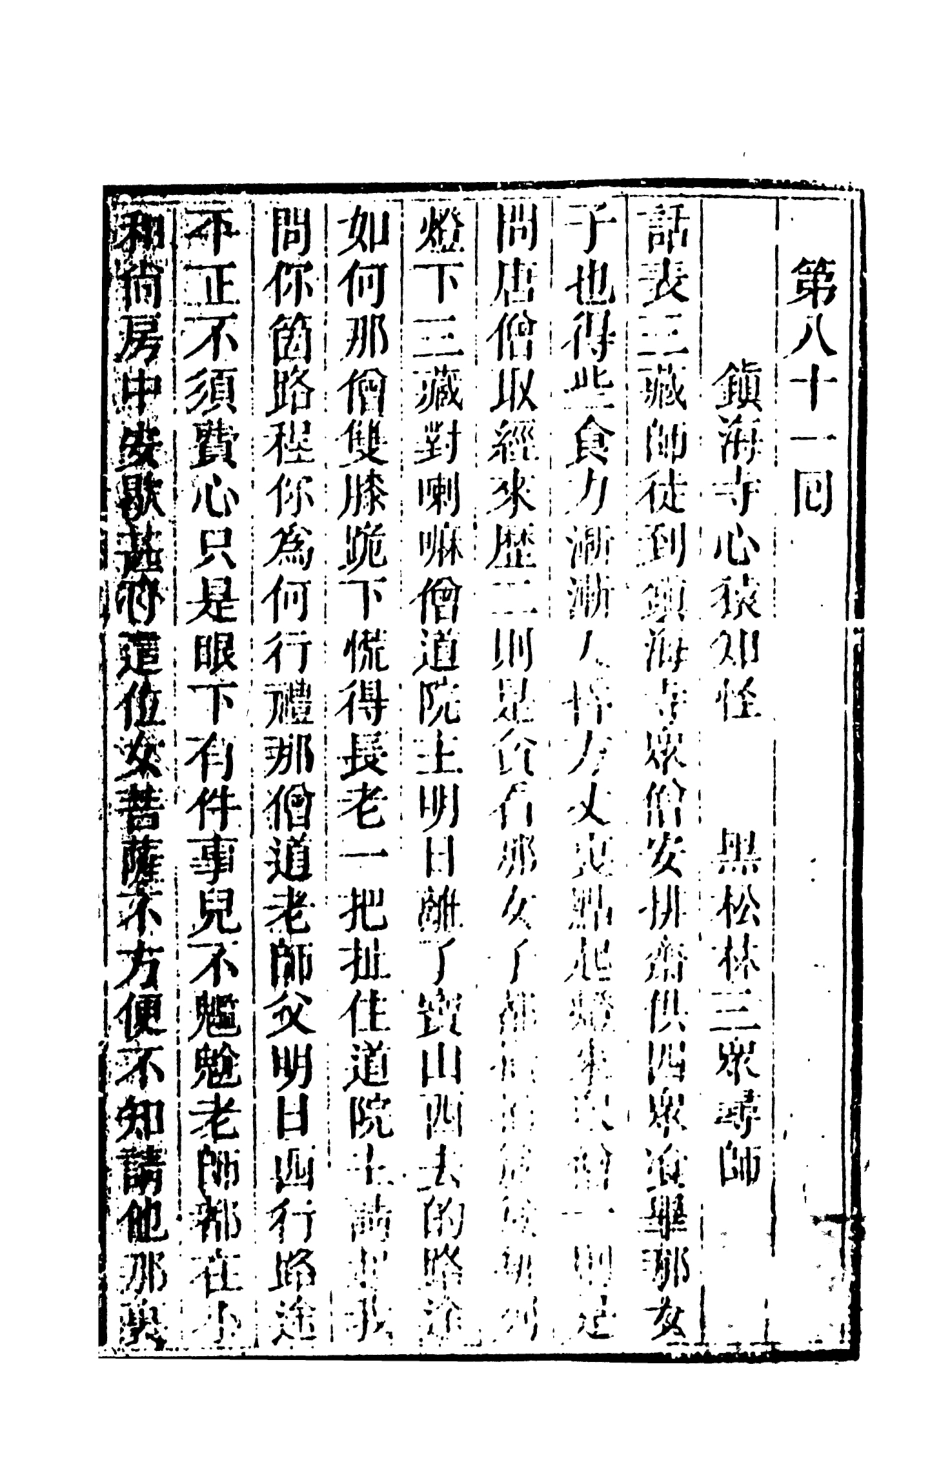 第八十一回
鎮海寺心猿知怪　黑松林三眾尋師
話表三藏師徒到鎮海寺眾僧安排齋供四眾食畢那女
子也得些食力漸漸天昏方丈裏點起燈來眾僧一則是
問唐僧取經來歷二則是貪看那女子都攢攢簇簇排列
燈下三藏對喇嘛僧道院主明日離了寶山西去的路途
如何那僧雙膝跪下慌得長老一把扯住道院主請起我
問你箇路程你為何行禮那僧道老師父明日西行路途
平正不須費心只是眼下有件事兒不魀魀老師都在小
和尚房中安歇甚好這位女菩薩不方便不知請他那裏